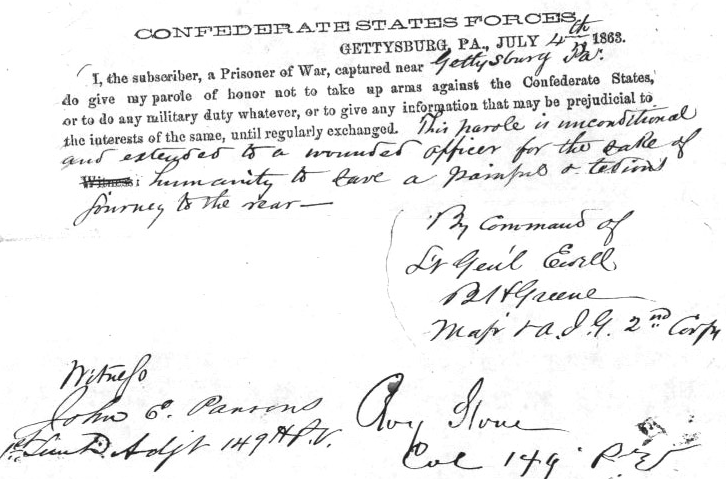 CONFEDERATE STATES FORCES,
GETTYSBURG, PA., JULY 4th 1863.
I, the subscriber, a Prisoner of War, captured near Gettysburg Pa.
do give my parole of honor not to take up arms against the Confederate States,
or to do any military duty whatever, or to give any information that may be prejudicial to
the interests of the same, until regularly exchanged. This parole is unconditional
and extended to a wounded officer for the sake of
Witness: humanity to save a painful & tedious
journey to the rear—
By Command of
Lt Gen'l Ewell
BH Greene
Majr & A. I. G. 2nd Corps
Witness
John E. Parsons
1st Lieut. Adjt 149th P.V.
Roy Stone
Col 149 P V